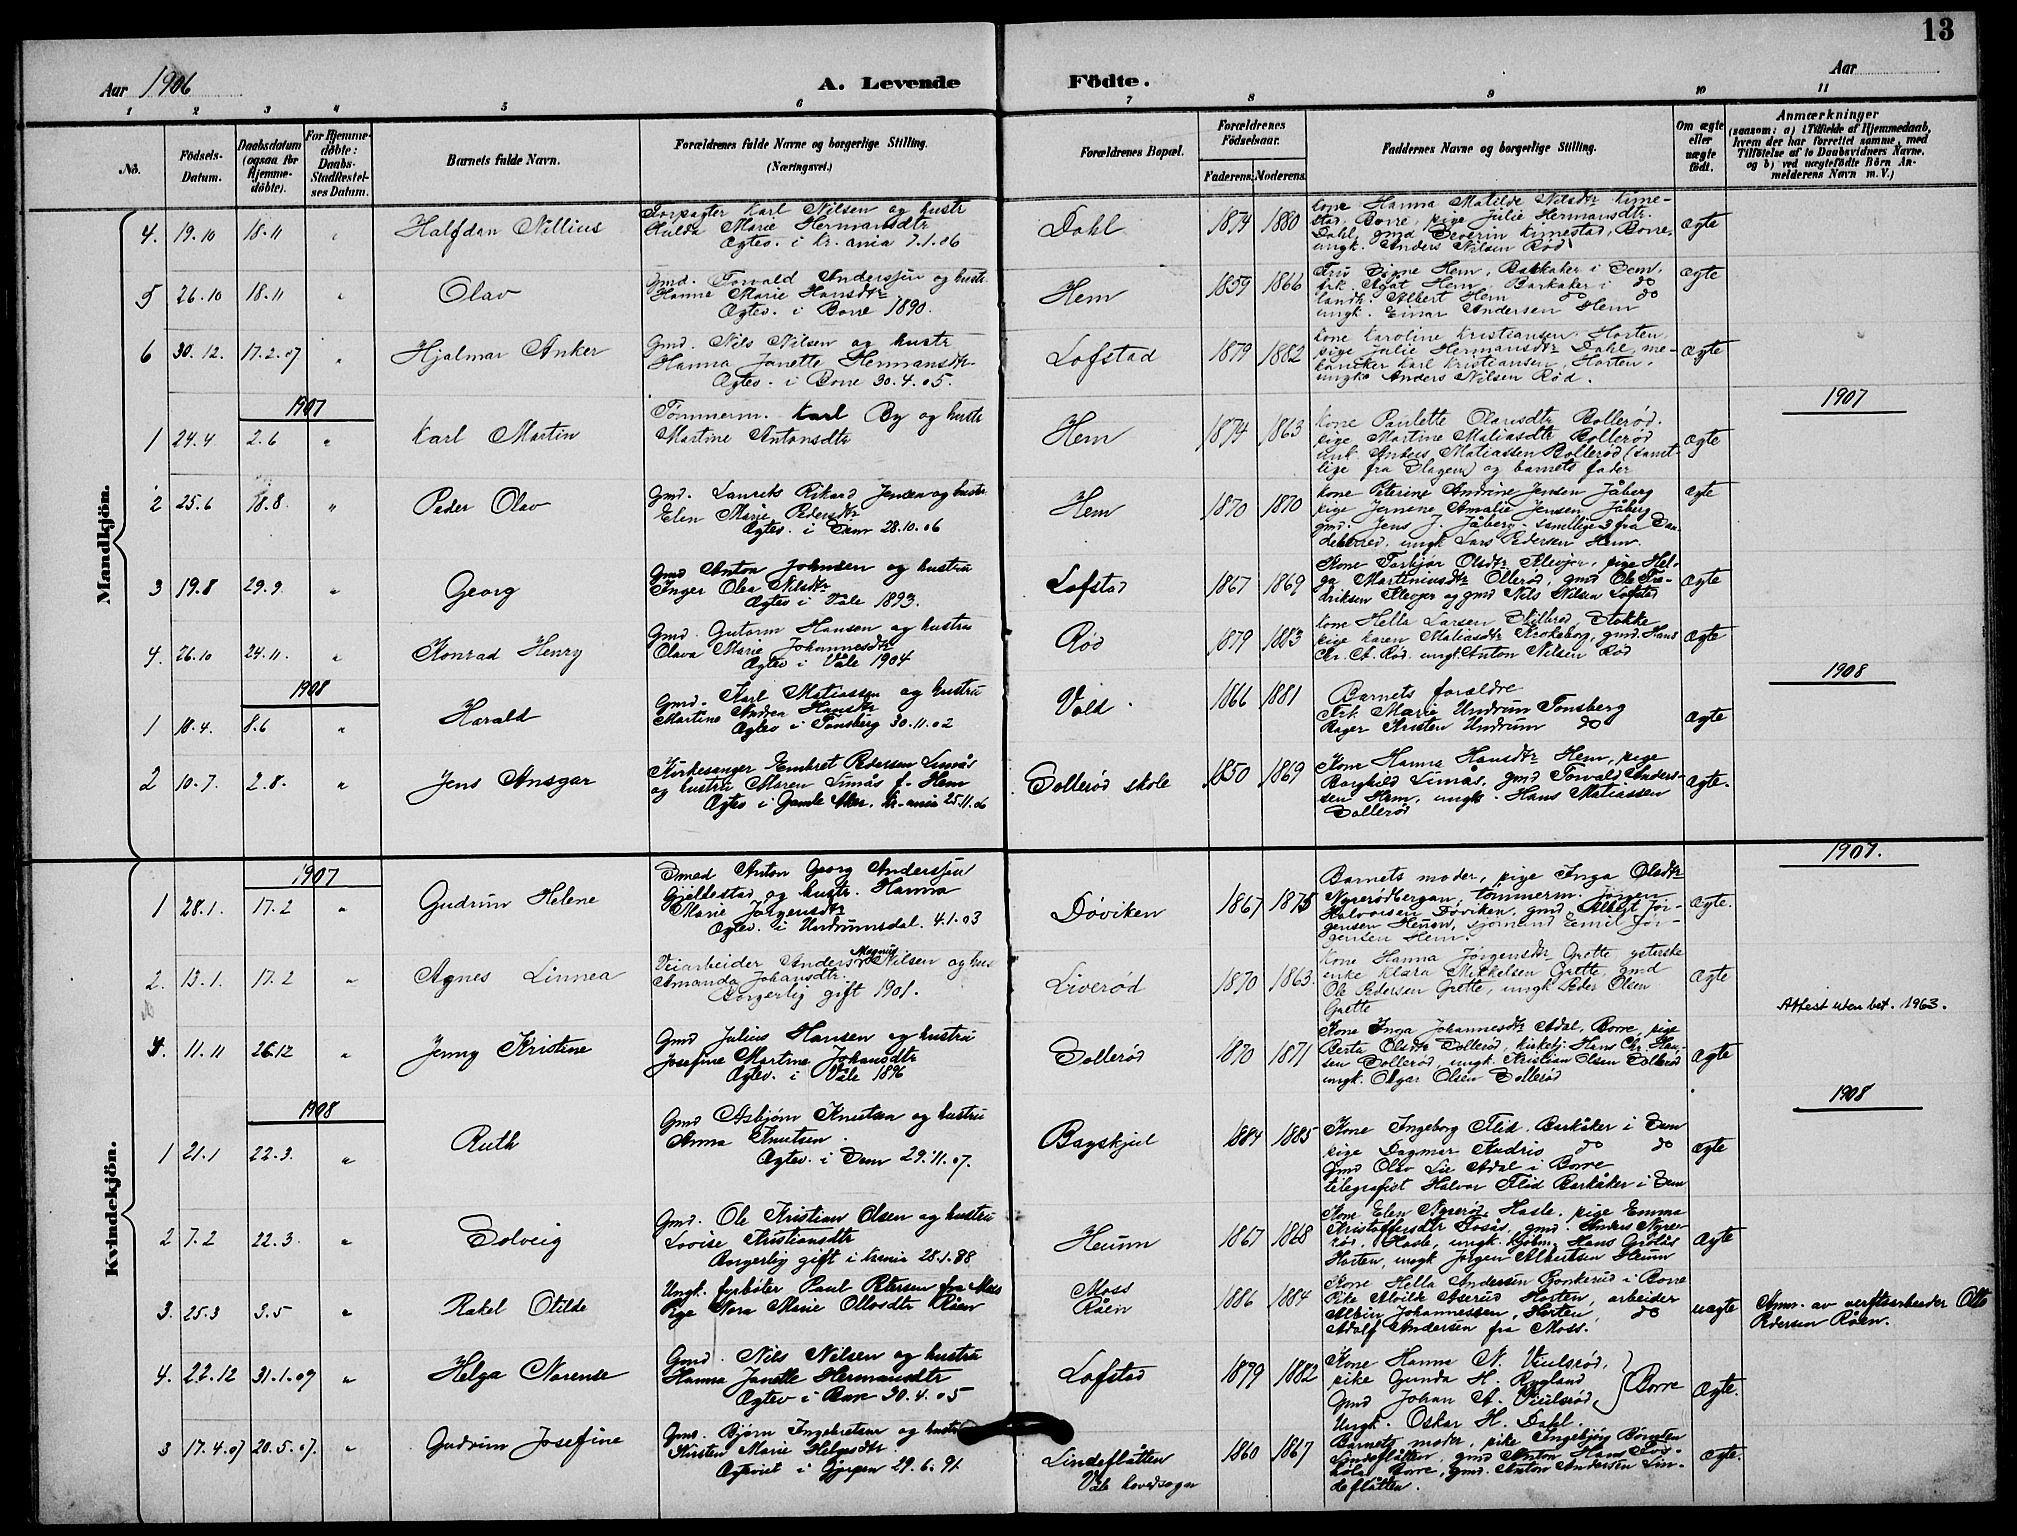 13
Aar 1906
A. Levende
Födte.
Aar
1 2 3 4 5 6 7 8 9 10 11
No.
Födsels-
Datum.
Daabsdatum
(ogsaa for
Hjemme-
döbte).
For Hjemme-
döbte:
Daabs-
Stadfæstel-
ses Datum.
Barnets fulde Navn.
Forældrenes fulde Navne og borgerlige Stilling.
(Næringsvei.)
Forældrenes Bopæl.
Forældrenes
Födselsaar.
Faderens. Moderens.
Faddernes Navne og borgerlige Stilling.
Om ægte
eller
uægte
födt.
Anmærkninger
(saasom: a) i Tilfælde af Hjemmedaab,
hvem der har forrettet samme, med
Tilföielse af to Daabsvidners Navne.
og b) ved uægtefödte Börn An-
melderens Navn m. V.)
Mandkjön.
4. 19.10 18.11 " Halfdan Nillius
Forpagter Karl Nilsen og hustr
Hulda Marie Hermansdtr
Ægtev. i Kr.ania 7.1.06
Dahl 1874 1880
kone Hanna Matilde Nilsdtr Kime-
stad, Borre, pige Julie Hermansdtr
Dahl, gmd Severin Kimestad, Borre,
ungk. Anders Nilsen Rød
ægte
5 26.10 18.11 " Olav
Gmd. Torvald Andersen og hustr.
Hanna Marie Hansdtr
Ægtev. i Borre 1890.
Hem 1859 1866
Fru Signe Hem, Barkaker i Sem,
frk. Agåt Hem, Barkaker i do
landh. Albert Hem do do
ungk. Einar Andersen Hem
ægte
6 30.12. 17.2.07 " Hjalmar Anker
Gmd. Nils Nilsen og hustr
Hanna Janette Hermansdtr
Ægtev. i Borre 30.4.05.
Lofstad 1879 1882
kone Karoline Kristiansen Horten,
pige Julie Hermansdtr Dahl, me-
kaniker Karl Kristiansen, Horten,
ungk. Anders Nilsen Rød.
ægte
1907
1907
1 24.4 2.6 " Karl Martin
Tömmerm. Karl By og hustr
Martine Antonsdtr
Hem 1874 1863
kone Paulette Olausdtr Bollerød.
pige Martine Matiasdtr Bollerød
unk. Matiassen Bollerød (samt-
lige fra Slagen) og barnets fader
ægte
2 25.6 18.8. " Peder Olav
Gmd. Laurits Rikard Jensen og hustr
Elen Marie Pedersdtr
Ægtev. i Sem 28.10.06
Hem 1870 1870
kone Peterine Andrine Jensen Jåberg
pige Jensine Amalie Jensen Jåberg
gmd. Jens J. Jåberg samtlige 3 fra San-
deherred, ungk. Lars Pedersen Hem.
ægte
3 19.8 29.9. " Georg
Gmd Anton Johnsen og hustru
Inger Olea Nilsdtr
Ægtev i Våle 1893.
Lofstad 1867 1869
Kone Torbjør Olsdtr, pige Hel-
ga Martiniusdtr Ollerød, gmd Ole Fre-
driksen og gmd Nils Nilsen Lofstad
ægte
4. 26.10 24.11. " Konrad Henry
Gmd. Gutorm Hansen og hustru
Olava Marie Johannesdtr
Ægtev i Våle 1904
Rød 1879 1883
kone Hella Larsen, Stokke
pige Karen Matiasdtr, gmd. Hans
Chr. A. Rød. ungk. Anton Nilsen Rød
ægte
1908
1908
1 18.4. 8.6 " Harald
Gmd. Karl Matiassen og hustru
Martine Andrea Hansdtr
Ægtev i Tønsberg 30.11.02
Vold. 1866 1881
Barnets forældre
Frk. Marie Undrum Tønsberg
Bager Kristen Undrum do
ægte
2 10.7. 2.8. " Jens Ansgar
Kirkesanger Embret Pedersen Limås
og hustru Maren Limås f. Hem
Ægtev i Gamle Aker. Kr.ania 25.11.06
Sollerød skole 1850 1869
Kone Hanna Hansdtr Hem, pige
Borghild Limås, gmd Torvald Anders-
sen Hem, ungk. Hans Matiassen
Sollerød
ægte.
Kvindekjön.
1907
1907.
1 28.1. 17.2 " Gudrun Helene
Smed Anton Georg Andersen
Gjellestad og hustr. Hanna
Marie Jørgensdtr
Ægtev. i Undrumsdal. 4.1.03
Døviken 1867 1875
Barnets moder, pige Inga Olsdtr
Nyrerødbergan, tömmerm. Jörgen
Halvorsen Döviken, gmd. Albert Jör-
gensen Heum, sjömand Emil Jör-
gensen Hem.
ægte.
2. 13.1. 17.2 " Agnes Linnea
Veiarbeider Anders Magnus Nilsen og hus
Amanda Johansdtr.
Borgerlig gift 1901.
Liverød 1870 1863.
kone Hanna Jørgensdtr Grette
enke Klara Mikkelsen Grette, gmd
Ole Pedersen Grette, ungk Peder Olsen
Grette
ægte
Attest uten bet. 1963.
4. 11.11 26.12 " Jenny Kristine
Gmd Julius Hansen og hustru
Josefine Martine Johansdtr
Ægtev. i Våle 1896
Sollerød 1870 1871
Kone Inga Johannesdtr Adal, Borre, pige
Berta Olsdtr Sollerød, kirketj. Hans Chr. Han-
sen Sollerød, ungk. Kristian Olsen Sollerød
ungk. Olsen Sollerød
ægte
1908
1908
1 21.1 22.3. " Ruth
Gmd Asbjørn Knutsen og hustru
Anna Knutsen.
Ægtev. i Sem 29.11.07.
Bagskjul 1884 1885
Kone Ingeborg Flid, Barkåker i Sem
pige Dagmar do do
Gmd Olav Lie Adal i Borre
telegrafist Halvor Flid Barkåker i Sem
ægte
2 7.2 22.3. " Solveig
Gmd. Ole Kristian Olsen og hustru
Lovise Kristiansdtr
Borgerlig gift i Krania 28.1.88
Heum 1867 1868
Kone Elen Nyrerød Hasle. pige Emma
Kristoffersdtr, gmd. Anders Nyre-
rød, Hasle, ungk. kjøbm. Hans
Horten, ungk Jørgen Albertsen Heum
ægte
3. 25.3 3.5 " Rakel Otilde
Ungk. fyrbøter Paul Petersen fra Moss
Pige Nora Marie Ottosdtr Råen
Moss
Råen
1886 1884
Kone Hella Andersen i Borre
Pike Horten, arbeider
Albin Johannessen, Horten, do
Adolf Andersen fra Moss.
uægte
Anm. av verftsarbeider Otto
Pedersen Råen.
4. 22.12 31.1.09 " Helga Narense
Gmd. Nils Nilsen og hustru
Hanna Janette Hermansdtr
Ægtev i Borre 30.4.05
Lofstad 1879 1882
Kone Hanna N. Viulsrød,
pike Gunda H. Rygland
Gmd Johan A. Viulsrød,
Ungk. Oskar H. Dahl.
Borre
ægte.
3 17.4.07 20.5.07. " Gudrun Josefine
Gmd. Bjørn Ingebretsen og hustr
Kirsten Marie Helgesdtr
Ægteviet i Gjerpen 29.6.91
Lindeflåtten
Våle hovedsogn
1860 1867
Barnets moder, pike Ingebjørg Børnsen
Lindeflåtten, gmd Anton Hans.
Borre, gmd. Anton Andersen Lin-
deflåtten.
ægte.